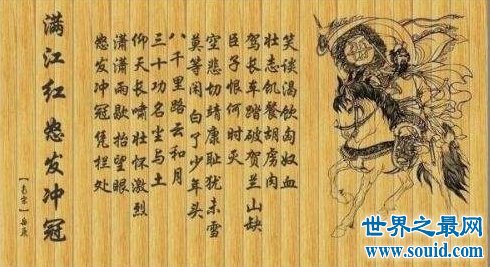 满江红 怒发冲冠
怒发冲冠凭栏处
潇潇雨歇抬望眼
仰天长啸壮怀激烈
三十功名尘与土
八千里路云和月
莫等闲白了少年头
空悲切靖康耻犹未雪
臣子恨何时灭
驾长车踏破贺兰山缺
壮志饥餐胡虏肉
笑谈渴饮匈奴血
世界之最网
www.souid.com